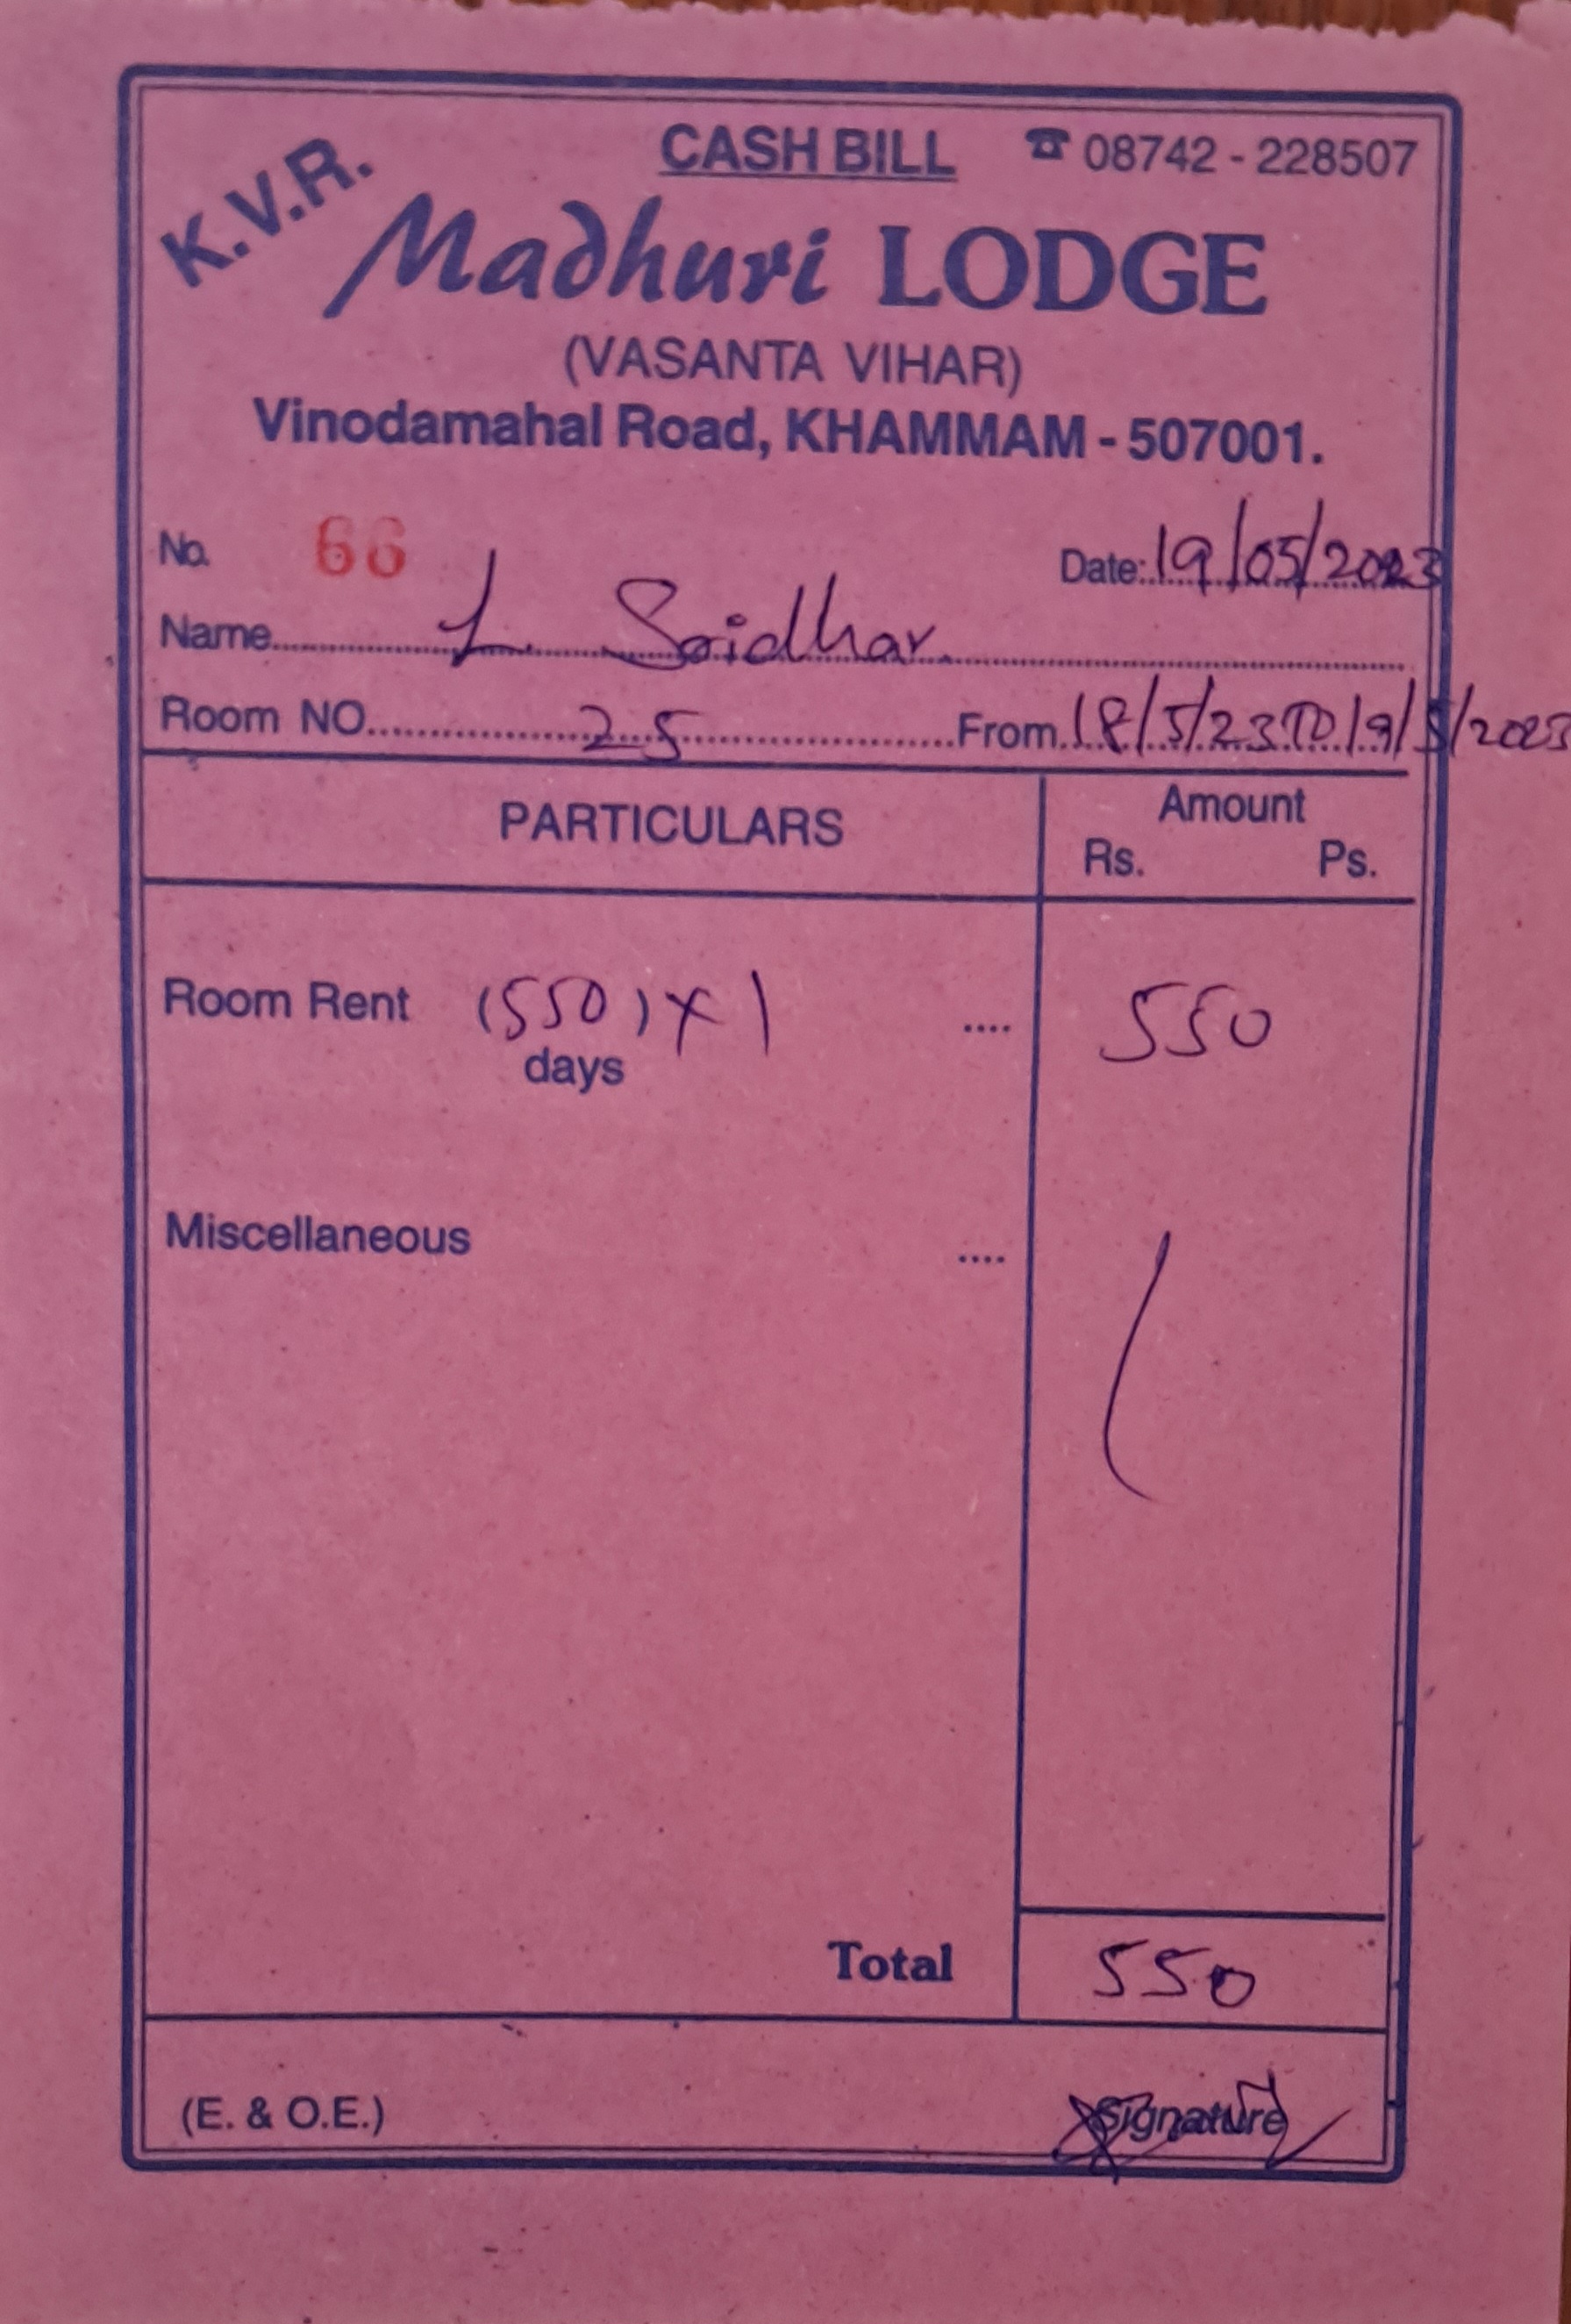 K.V.R.
CASH BILL ☎ 08742 - 228507
Madhuri LODGE
(VASANTA VIHAR)
Vinodamahal Road, KHAMMAM - 507001.
No. 66 Date: 19/05/2023
Name L. Sridhar
Room NO. 25 From 18/5/23 TO 19/5/2023
PARTICULARS Amount
Rs. Ps.
Room Rent (550) x 1 .... 550
days
Miscellaneous ....
Total 550
(E. & O.E.) Signature